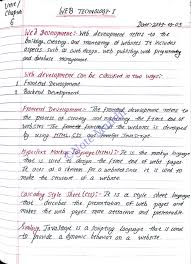 Unit /
Chapter
6
WEB TECHNOLOGY-I
Web Development: Web development refers to the
building, creating, and maintaining of websites. It includes
aspects such as web design, web publishing, web programming
and database management.
Web development can be classified in two ways:
1 Frontend Development
2 Backend Development
Frontend Development: The frontend development refers
to the process of creating and
the front end of the website is developed
by using HTML, CSS and JavaScript.
Hypertext Markup language (HTML): It is the markup language
that is used to design the front end of web pages.
It acts as a for a website since it is used to
make the structure of a website.
Cascading Style Sheet (CSS): It is a style sheet language
that describes the presentation of web pages and
makes the web pages more attractive and presentable.
JavaScript is a scripting language that is used
to provide a dynamic behavior on a website.